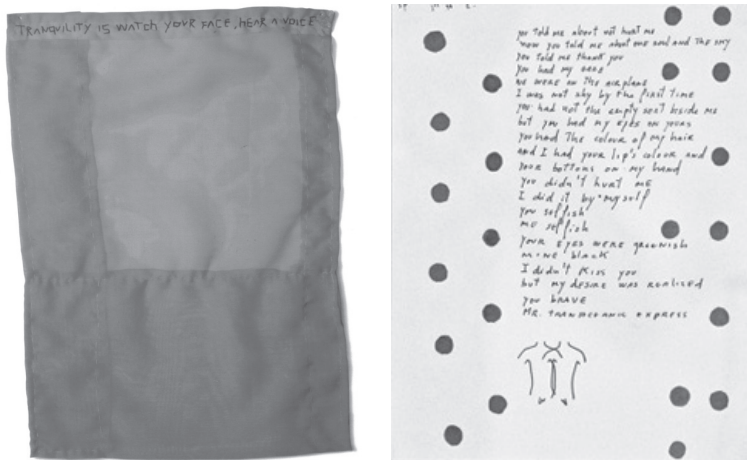 TRANQUILITY IS WATCH YOUR FACE, HEAR A VOICE
you told me about not hurt me
now you told me about one soul and the sky
you told me thank you
you had my
we were on the airplane
I was not shy by the first time
you had not the empty seat beside me
but you had my eyes on yours
you had the colour of my hair
and I had your lip's colour and
your bottons on my hand
you didn't hurt me
I did it by myself
you selfish
me selfish
your eyes were greenish
mine black
I didn't kiss you
but my desire was realised
you BRAVE
MR. transoceanic express